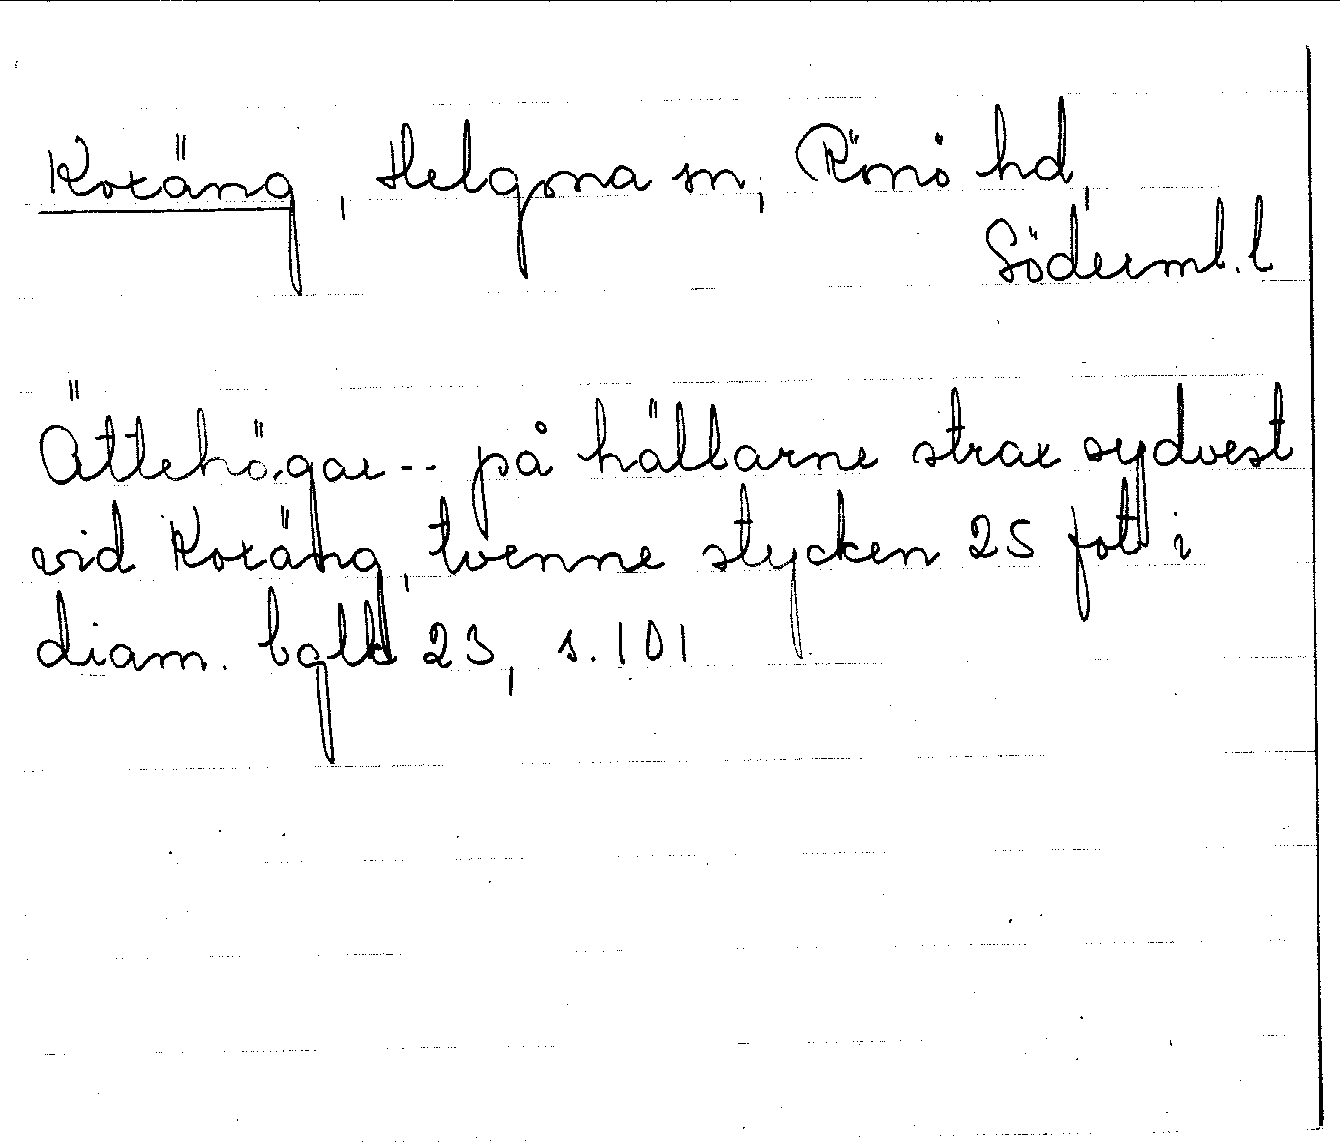 Koxäng, Helgona sn, Rönö hd,
Söderml. l
Ättehögar -- på hällarne strax sydvest
vid Koxäng, tvenne stycken 25 fot i
diam. bgld 23, s. 101